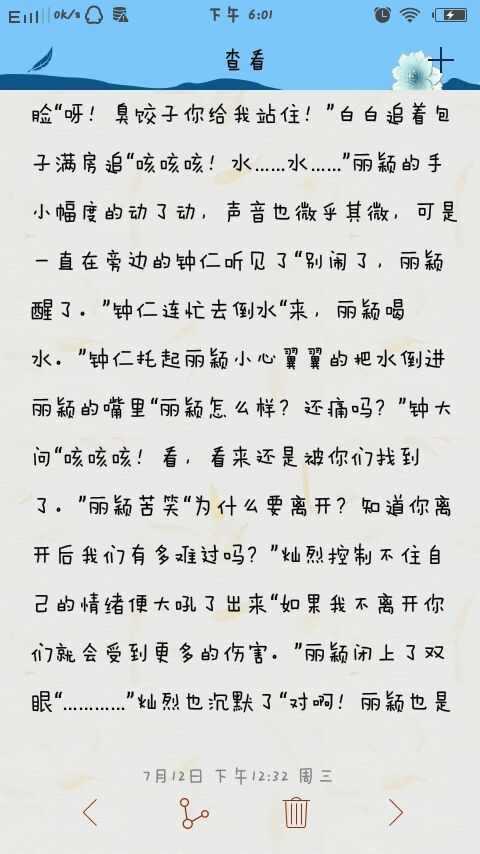 0K/s 下午 6:01
查看
脸“呀！臭饺子你给我站住！”白白追着包
子满房追“咳咳咳！水……水……”丽颖的手
小幅度的动了动，声音也微乎其微，可是
一直在旁边的钟仁听见了“别闹了，丽颖
醒了。”钟仁连忙去倒水“来，丽颖喝
水。”钟仁托起丽颖小心翼翼的把水倒进
丽颖的嘴里“丽颖怎么样？还痛吗？”钟大
问“咳咳咳！看，看来还是被你们找到
了。”丽颖苦笑“为什么要离开？知道你离
开后我们有多难过吗？”灿烈控制不住自
己的情绪便大吼了出来“如果我不离开你
们就会受到更多的伤害。”丽颖闭上了双
眼“…………”灿烈也沉默了“对啊！丽颖也是
7月12日 下午12:32 周三